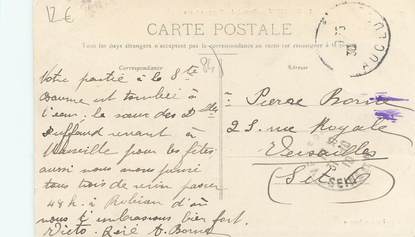 12 €
CARTE POSTALE
Tous les pays étrangers n'acceptent pas la correspondance au verso (se renseigner à la poste)
Correspondance
Adresse
84
Votre partie à la Ste
Baume est tombée à
l'eau. la sœur des Dlles
Duffaud venant à
Marseille pour les fêtes
aussi nous avons
tous trois de venir passer
48 h. à
nous t'embrassons bien fort.
Pierre
25 rue Royale
Versailles
S et O